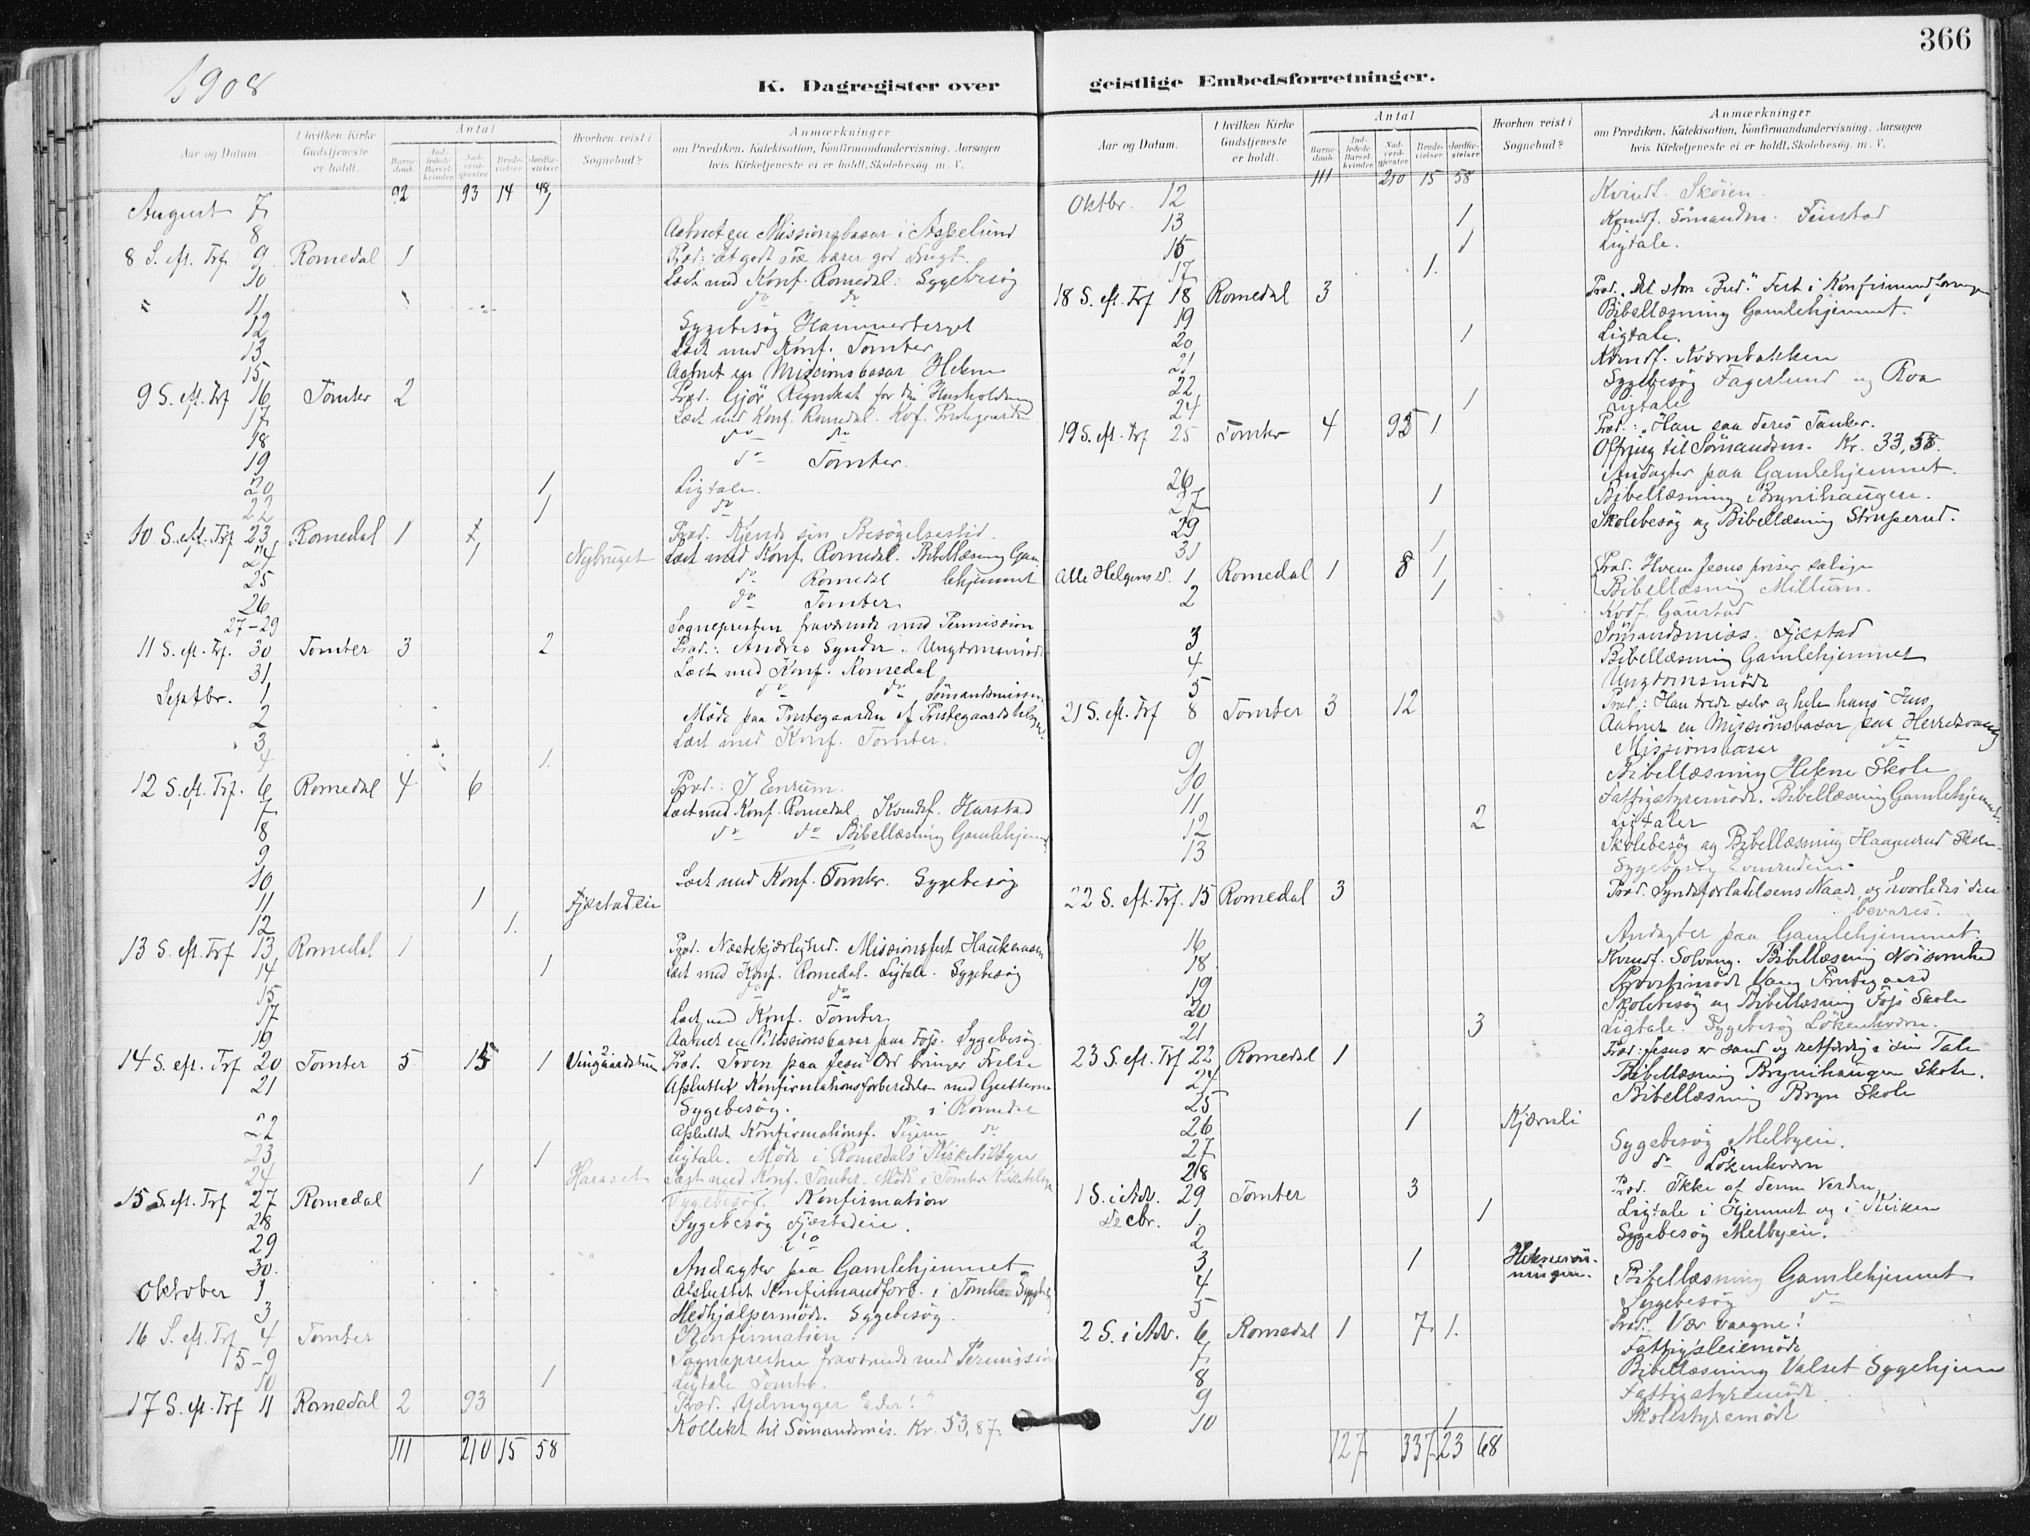 366
1908
K. Dagregister over
geistlige Embedsforretninger.
Aar og Datum.
I hvilken Kirke Gudstjeneste er holdt.
Antal
Barnedaab.
Indledede Barselkvinder.
Nadverdgjester
Brudevielser
Jordfæstelser
Hvorhen reist i Sognebud?
Anmærkninger
om Prædiken, Katekisation, Konfirmandundervisning, Aarsagen
hvis Kirketjeneste ei er holdt. Skolebesøg m. V.
92 93 14 48
August 7
8 Aabnet en Missionsbasar i
8 S. eft. Trf. 9 Romedal 1 Præd: at godt Træ bærer god Frugt.
10 Læst med Konf. Romedal. Sygebesøg
11 do do
12 Sygebesøg Hammerberget
13 Læst med Konf. Tomter
15 Aabnet en Missionsbasar Hekne
9 S. eft. Trf 16 Tomter 2 Præd. Gjør Regnskab for din Husholdning
17 Læst med Konf. Romedal.
18 do do
19 do Tomter.
20 1 Ligtale.
22 1 do
10 S. eft. Trf 23 Romedal 1 Præd. Kjende sin Besøgelsestid.
24 1 Nybruget Læst med Konf. Romedal. Bibellæsning Gamlehjemmet
25 do Romedal
26 do Tomter
27-29 Sognepresten fraværende med Permission
11 S. eft. Trf. 30 Tomter 3 2 Præd.: Andres Synder. Ungdomsmøde
31 Læst med Konf. Romedal
Septbr. 1 do do Sømandsmission
2 Møde paa Prestegaarden
3 Læst med Konf. Tomter.
4 1
12 S. eft. Trf. 6 Romedal 4 6 Præd.: I Enrum.
7 Læst med Konf. Romedal. Kvindf. Harstad
8 do do Bibellæsning Gamlehjemmet
9
10 Læst med Konf. Tomter. Sygebesøg
11 1 Fjæstadeie
12 1.
13 S. eft. Trf 13 Romedal 1 Præd. Næstekjærlighed. Missionsfest
14 1 Læst med Konf. Romedal. Ligtale. Sygebesøg
15 do do
17 Læst med Konf. Tomter.
19 Aabnet en Missionsbasar paa Fojs. Sygebesøg
14 S. eft. Trf 20 Tomter 5 15 1 Præd. Troen paa Jesu Ord bringer Frelse
21 Afsluttet Konfirmationsforberedelse med Gutterne
Sygebesøg. i Romedal
22 Afsluttet Konfirmationsf. Pigerne do
23 1 Ligtale. Møde i Romedals
24 1 Haraset Læst med Konf. Tomter. Møde i Tomter
15 S. eft. Trf 27 Romedal Sygebesøg. Konfirmation
28 Sygebesøg Fjæstadeie.
29 do
30. Andagter paa Gamlehjemmet
Oktober 1 Afsluttet Konfirmandforb. i Tomter
3 Medhjælpermøde. Sygebesøg.
16 S. eft. Trf 4 Tomter Konfirmation
5-9 Sognepresten fraværende med Permission
10 1 Ligtale Tomter.
17 S. eft. Trf 11 Romedal 2 93 Præd. Ydmyger Eder!
Kollekt til Sømandsmis. Kr. 53,87.
111 210 15 58
Aar og Datum.
I hvilken Kirke Gudstjeneste er holdt.
Antal
Barnedaab.
Indledede Barselkvinder.
Nadverdgjester
Brudevielser
Jordfæstelser
Hvorhen reist i Sognebud?
Anmærkninger
om Prædiken, Katekisation, Konfirmandundervisning, Aarsagen
hvis Kirketjeneste ei er holdt. Skolebesøg m. V.
111 210 15 58
Oktbr. 12 Kvindf. Skøien.
13 1 Kvindf. Sømandsm. Finstad
15 1 Ligtale.
17 1.
18 S. eft. Trf 18 Romedal 3 Præd. "Det store Bud".
19 Bibellæsning Gamlehjemmet.
20 1 Ligtale.
21 Kvindf. Kværnbakken
22 Sygebesøg Fagerlund og Roa
24 1 Ligtale
19 S. eft. Trf 25 Tomter 4 95 1 Præd.: "Han saa deres Tanker.
Ofring til Sømandsm. Kr. 33,58.
26 Andagter paa Gamlehjemmet.
27 1 Bibellæsning Brynihaugen.
29 Skolebesøg og Bibellæsning Struperud.
31 1
Alle Helgens D. 1 Romedal 1 8 1 Præd. Hvem Jesus priser salige
2 1 Bibellæsning Millum.
Kvdf. Gaustad
3 Sømandsmiss. Fjæstad
4 Bibellæsning Gamlehjemmet
5 Ungdomsmøde
21 S. eft. Trf 8 Tomter 3 12 Præd.: Han trode selv og hele hans Hus
Aabner en Missionsbasar paa
9 Missionsbasar do
10 Bibellæsning Hekne Skole
11 Fattigstyremøde. Bibellæsning Gamlehjemmet.
12 2 Ligtaler
13 Skolebesøg og Bibellæsning Haagenrud Skole
Sygebesøg
22 S. eft. Trf. 15 Romedal 3 Præd. Syndsforladelsens Naade, og hvorledes den
bevares.
16 Andagter paa Gamlehjemmet.
18 Kvindf. Solvang. Bibellæsning Nøisomhed
19 Provstimøde Vang Prestegaard
20 Skolebesøg og Bibellæsning Fojs Skole
21 3 Ligtale. Sygebesøg Løkenkværn.
23 S. eft. Trf 22 Romedal 1 Præd: Jesus er sand og retfærdig i sin Tale
24 Bibellæsning Brynihaugen Skole.
25 Bibellæsning Bryn Skole
26 1 Kjærnsli
27 Sygebesøg Melbyeie.
28 do Løkenkværn
1 S. i Adv. 29 Tomter 3 Præd. Ikke af denne Verden
Decbr. 1. 1 Ligtale i Hjemmet og i Kirken
2 Sygebesøg Melbyeie.
3 1
4 Bibellæsning Gamlehjemmet
5 Sygebesøg do
2 S. i Adv. 6 Romedal 1 7 1. Præd. Vær vaagne!
7 Fattigpleiemøde
8 Bibellæsning Valset Sygehjem
9 Fattigstyremøde
10 1 Skolestyremøde
127 337 23 68